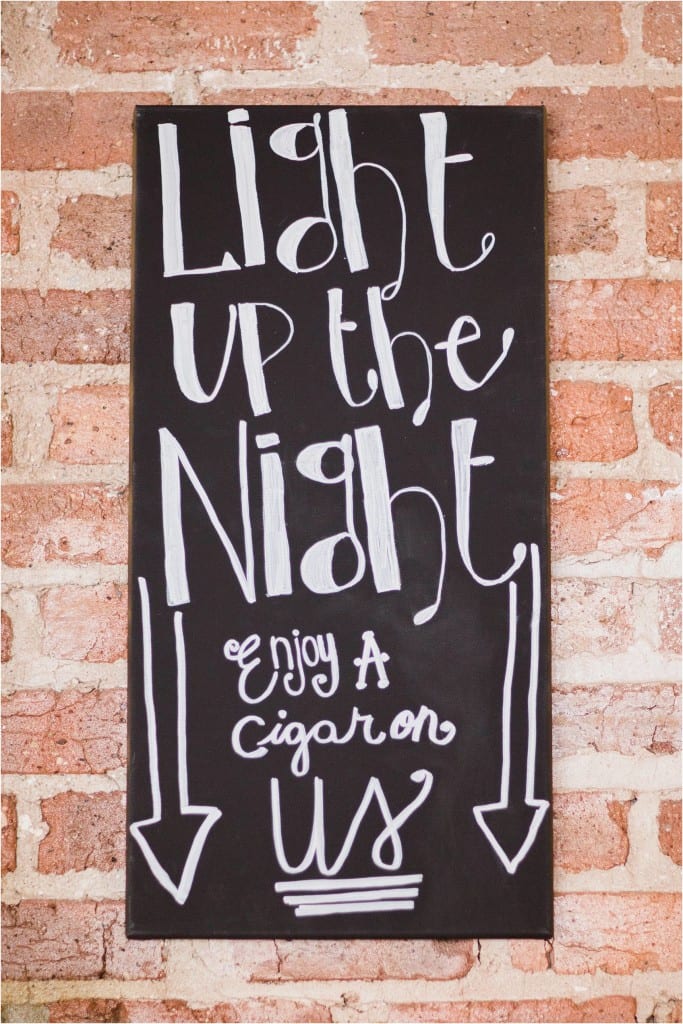 Light
up the
Night
Enjoy A
Cigar on
us